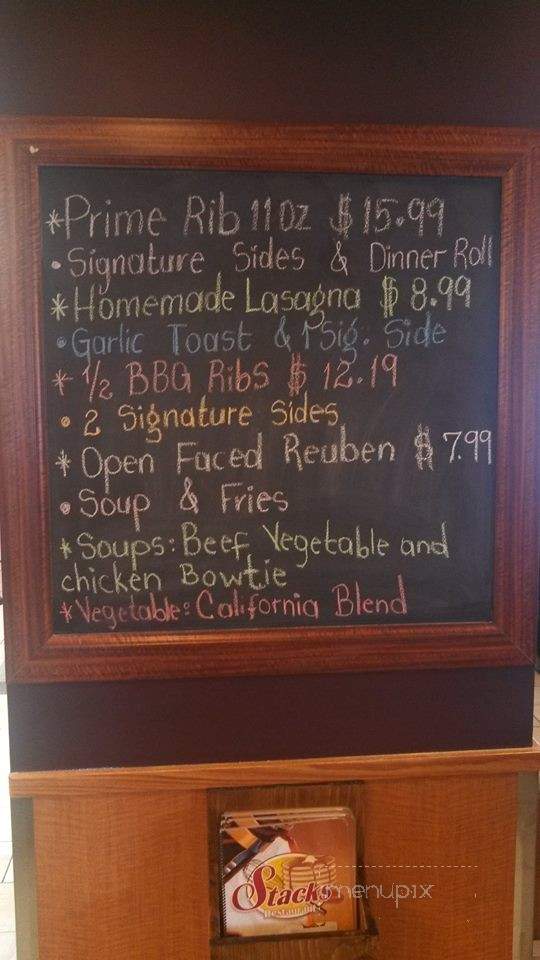 *Prime Rib 11oz $15.99
• Signature Sides & Dinner Roll
*Homemade Lasagna $8.99
• Garlic Toast & 1 Sig. Side
* 1/2 BBQ Ribs $12.19
• 2 Signature Sides
* Open Faced Reuben $7.99
• Soup & Fries
*Soups: Beef Vegetable and
chicken Bowtie
*Vegetable: California Blend
Stacks
Restaurant
menupix